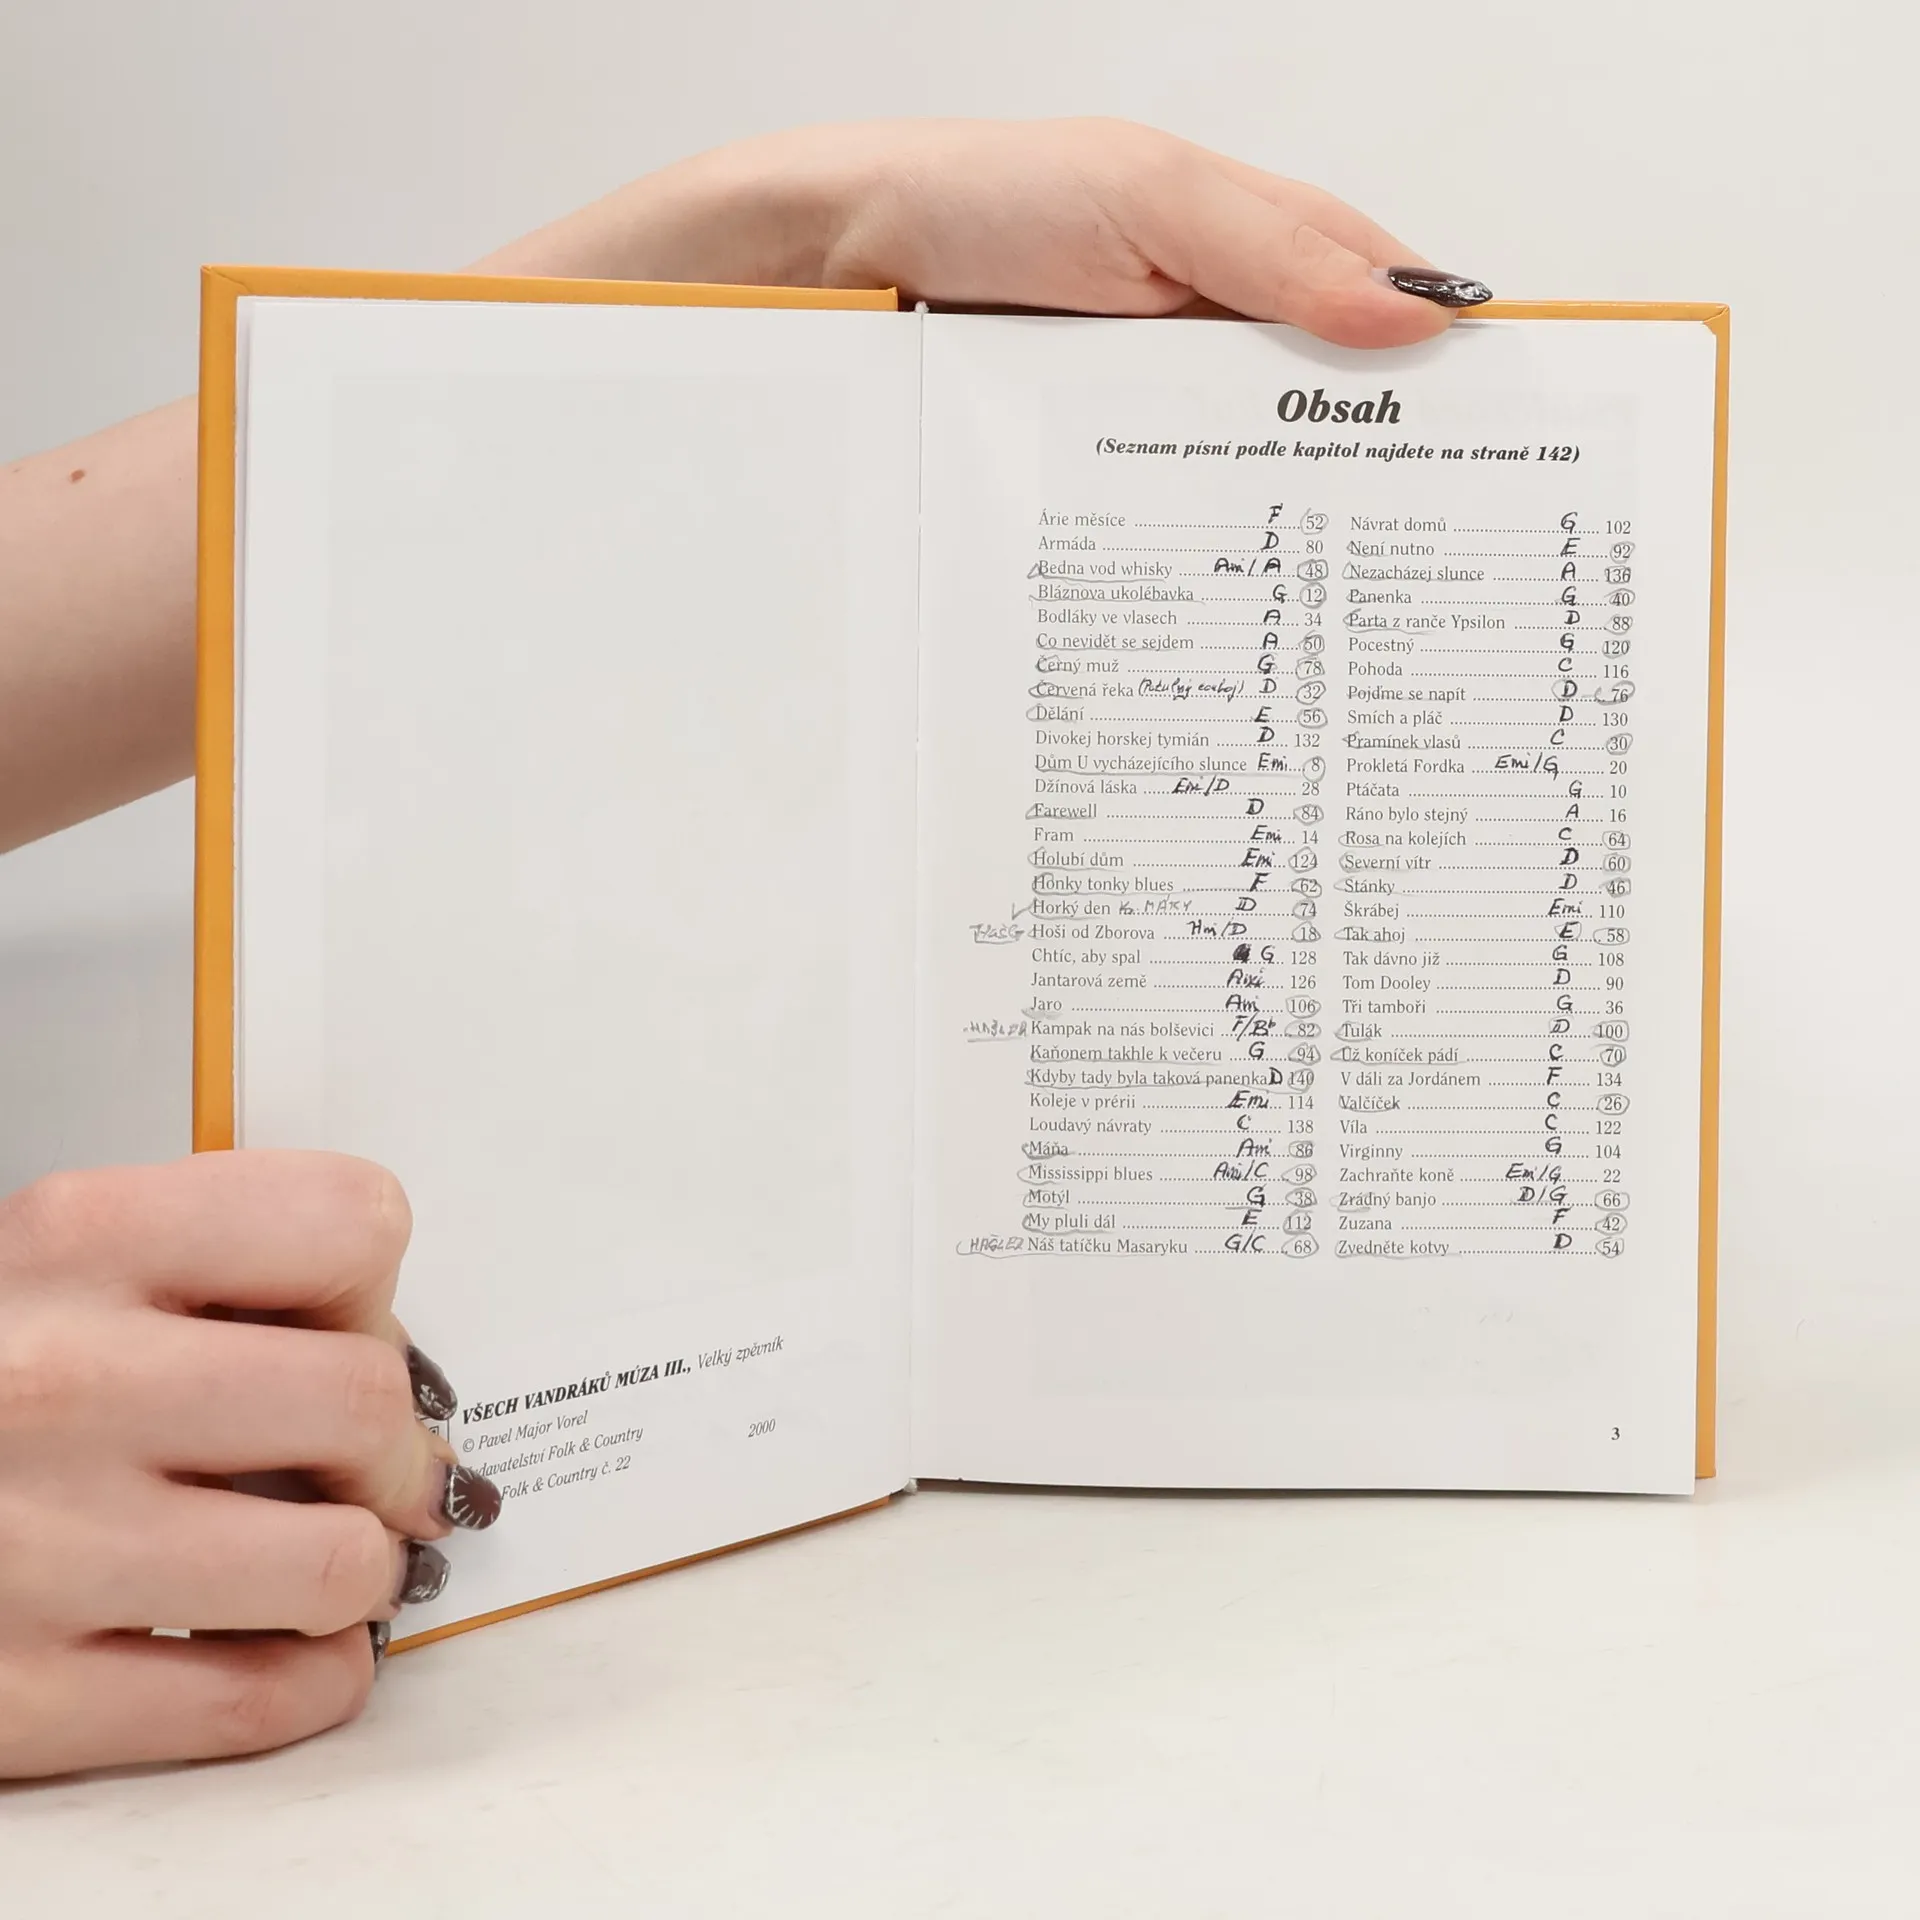 VŠECH VANDRÁKŮ MÚZA III., Velký zpěvník
© Pavel Major Vorel
davatelství Folk & Country 2000
Folk & Country č. 22
Obsah
(Seznam písní podle kapitol najdete na straně 142)
Árie měsíce F 52
Armáda D 80
Bedna vod whisky Ami/A 48
Bláznova ukolébavka G 12
Bodláky ve vlasech A 34
Co nevidět se sejdem A 50
Černý muž G 78
Červená řeka D 32
Dělání E 56
Divokej horskej tymián D 132
Dům U vycházejícího slunce Emi 8
Džínová láska Emi/D 28
Farewell D 84
Fram Emi 14
Holubí dům Emi 124
Honky tonky blues F 62
Horký den D 74
Hoši od Zborova Hmi/D 18
Chtíc, aby spal G 128
Jantarová země 126
Jaro Ami 106
Kampak na nás bolševici F/Bb 82
Kaňonem takhle k večeru G 94
Kdyby tady byla taková panenka D 140
Koleje v prérii Emi 114
Loudavý návraty C 138
Máňa Ami 86
Mississippi blues Ami/C 98
Motýl G 38
My pluli dál E 112
HAŠLER Náš tatíčku Masaryku G/C 68
Návrat domů G 102
Není nutno E 92
Nezacházej slunce A 136
Panenka G 40
Parta z ranče Ypsilon D 88
Pocestný G 120
Pohoda C 116
Pojďme se napít D 76
Smích a pláč D 130
Pramínek vlasů C 30
Prokletá Fordka Emi/G 20
Ptáčata G 10
Ráno bylo stejný A 16
Rosa na kolejích C 64
Severní vítr D 60
Stánky D 46
Škrábej Emi 110
Tak ahoj E 58
Tak dávno již G 108
Tom Dooley D 90
Tři tamboři G 36
Tulák D 100
Už koníček pádí C 70
V dáli za Jordánem F 134
Valčíček C 26
Víla C 122
Virginny G 104
Zachraňte koně Emi/G 22
Zrádný banjo D/G 66
Zuzana F 42
Zvedněte kotvy D 54
3